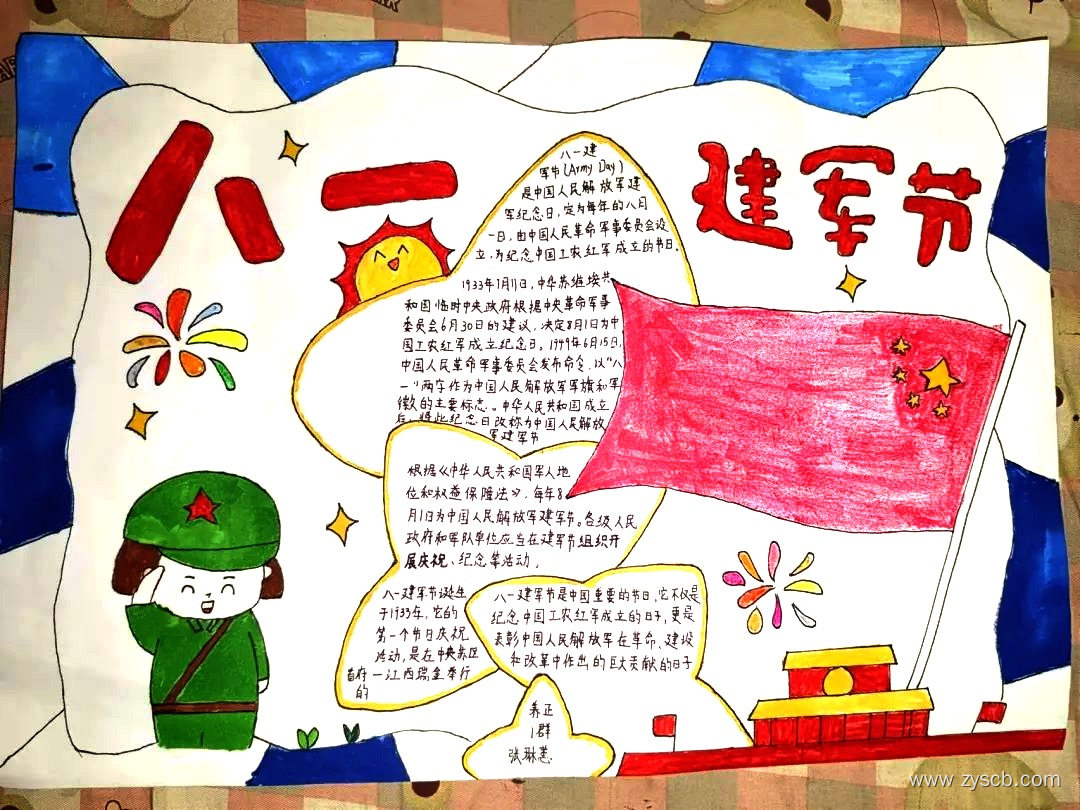 八一 建军节
八一建
军节(Army Day)
是中国人民解放军建
军纪念日，定为每年的八月
一日，由中国人民革命军事委员会设
立，为纪念中国工农红军成立的节日。
1933年7月11日，中华苏维埃共
和国临时中央政府根据中央革命军事
委员会6月30日的建议，决定8月1日为中
国工农红军成立纪念日。1949年6月15日，
中国人民革命军事委员会发布命令，以“八
一”两字作为中国人民解放军军旗和军
徽的主要标志。中华人民共和国成立
后，将此纪念日改称为中国人民解放
军建军节
根据《中华人民共和国军人地
位和权益保障法》，每年8
月1日为中国人民解放军建军节。各级人民
政府和军队单位应当在建军节组织开
展庆祝、纪念等活动。
八一建军节诞生
于1933年，它的
第一个节日庆祝
活动，是在中央苏区
首府一江西瑞金举行
的
八一建军节是中国重要的节日，它不仅是
纪念中国工农红军成立的日子，更是
表彰中国人民解放军在革命、建设
和改革中作出的巨大贡献的日子
养正
1群
张琳
www.zyscb.com